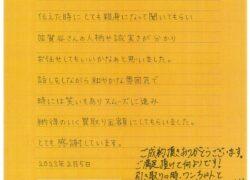 伝えた時にとても親身になって聞いてもらい
賀谷さんの人柄や誠実さが分かり
お任せしてもいいかなぁと思いました。
話しをしながら和やかな雰囲気で
時には笑いもありスムーズに進み
納得のいく買取り金額にしてもらいました。
とても感謝しています。
2023年2月5日
ご成約頂きありがとうございます。
ご満足頂けて何よりです!
引き取りの時、ワンちゃんと